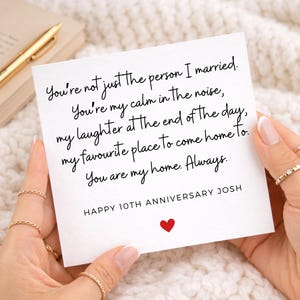 You're not just the person I married.
You're my calm in the noise,
my laughter at the end of the day,
my favourite place to come home to.
You are my home. Always.
HAPPY 10TH ANNIVERSARY JOSH